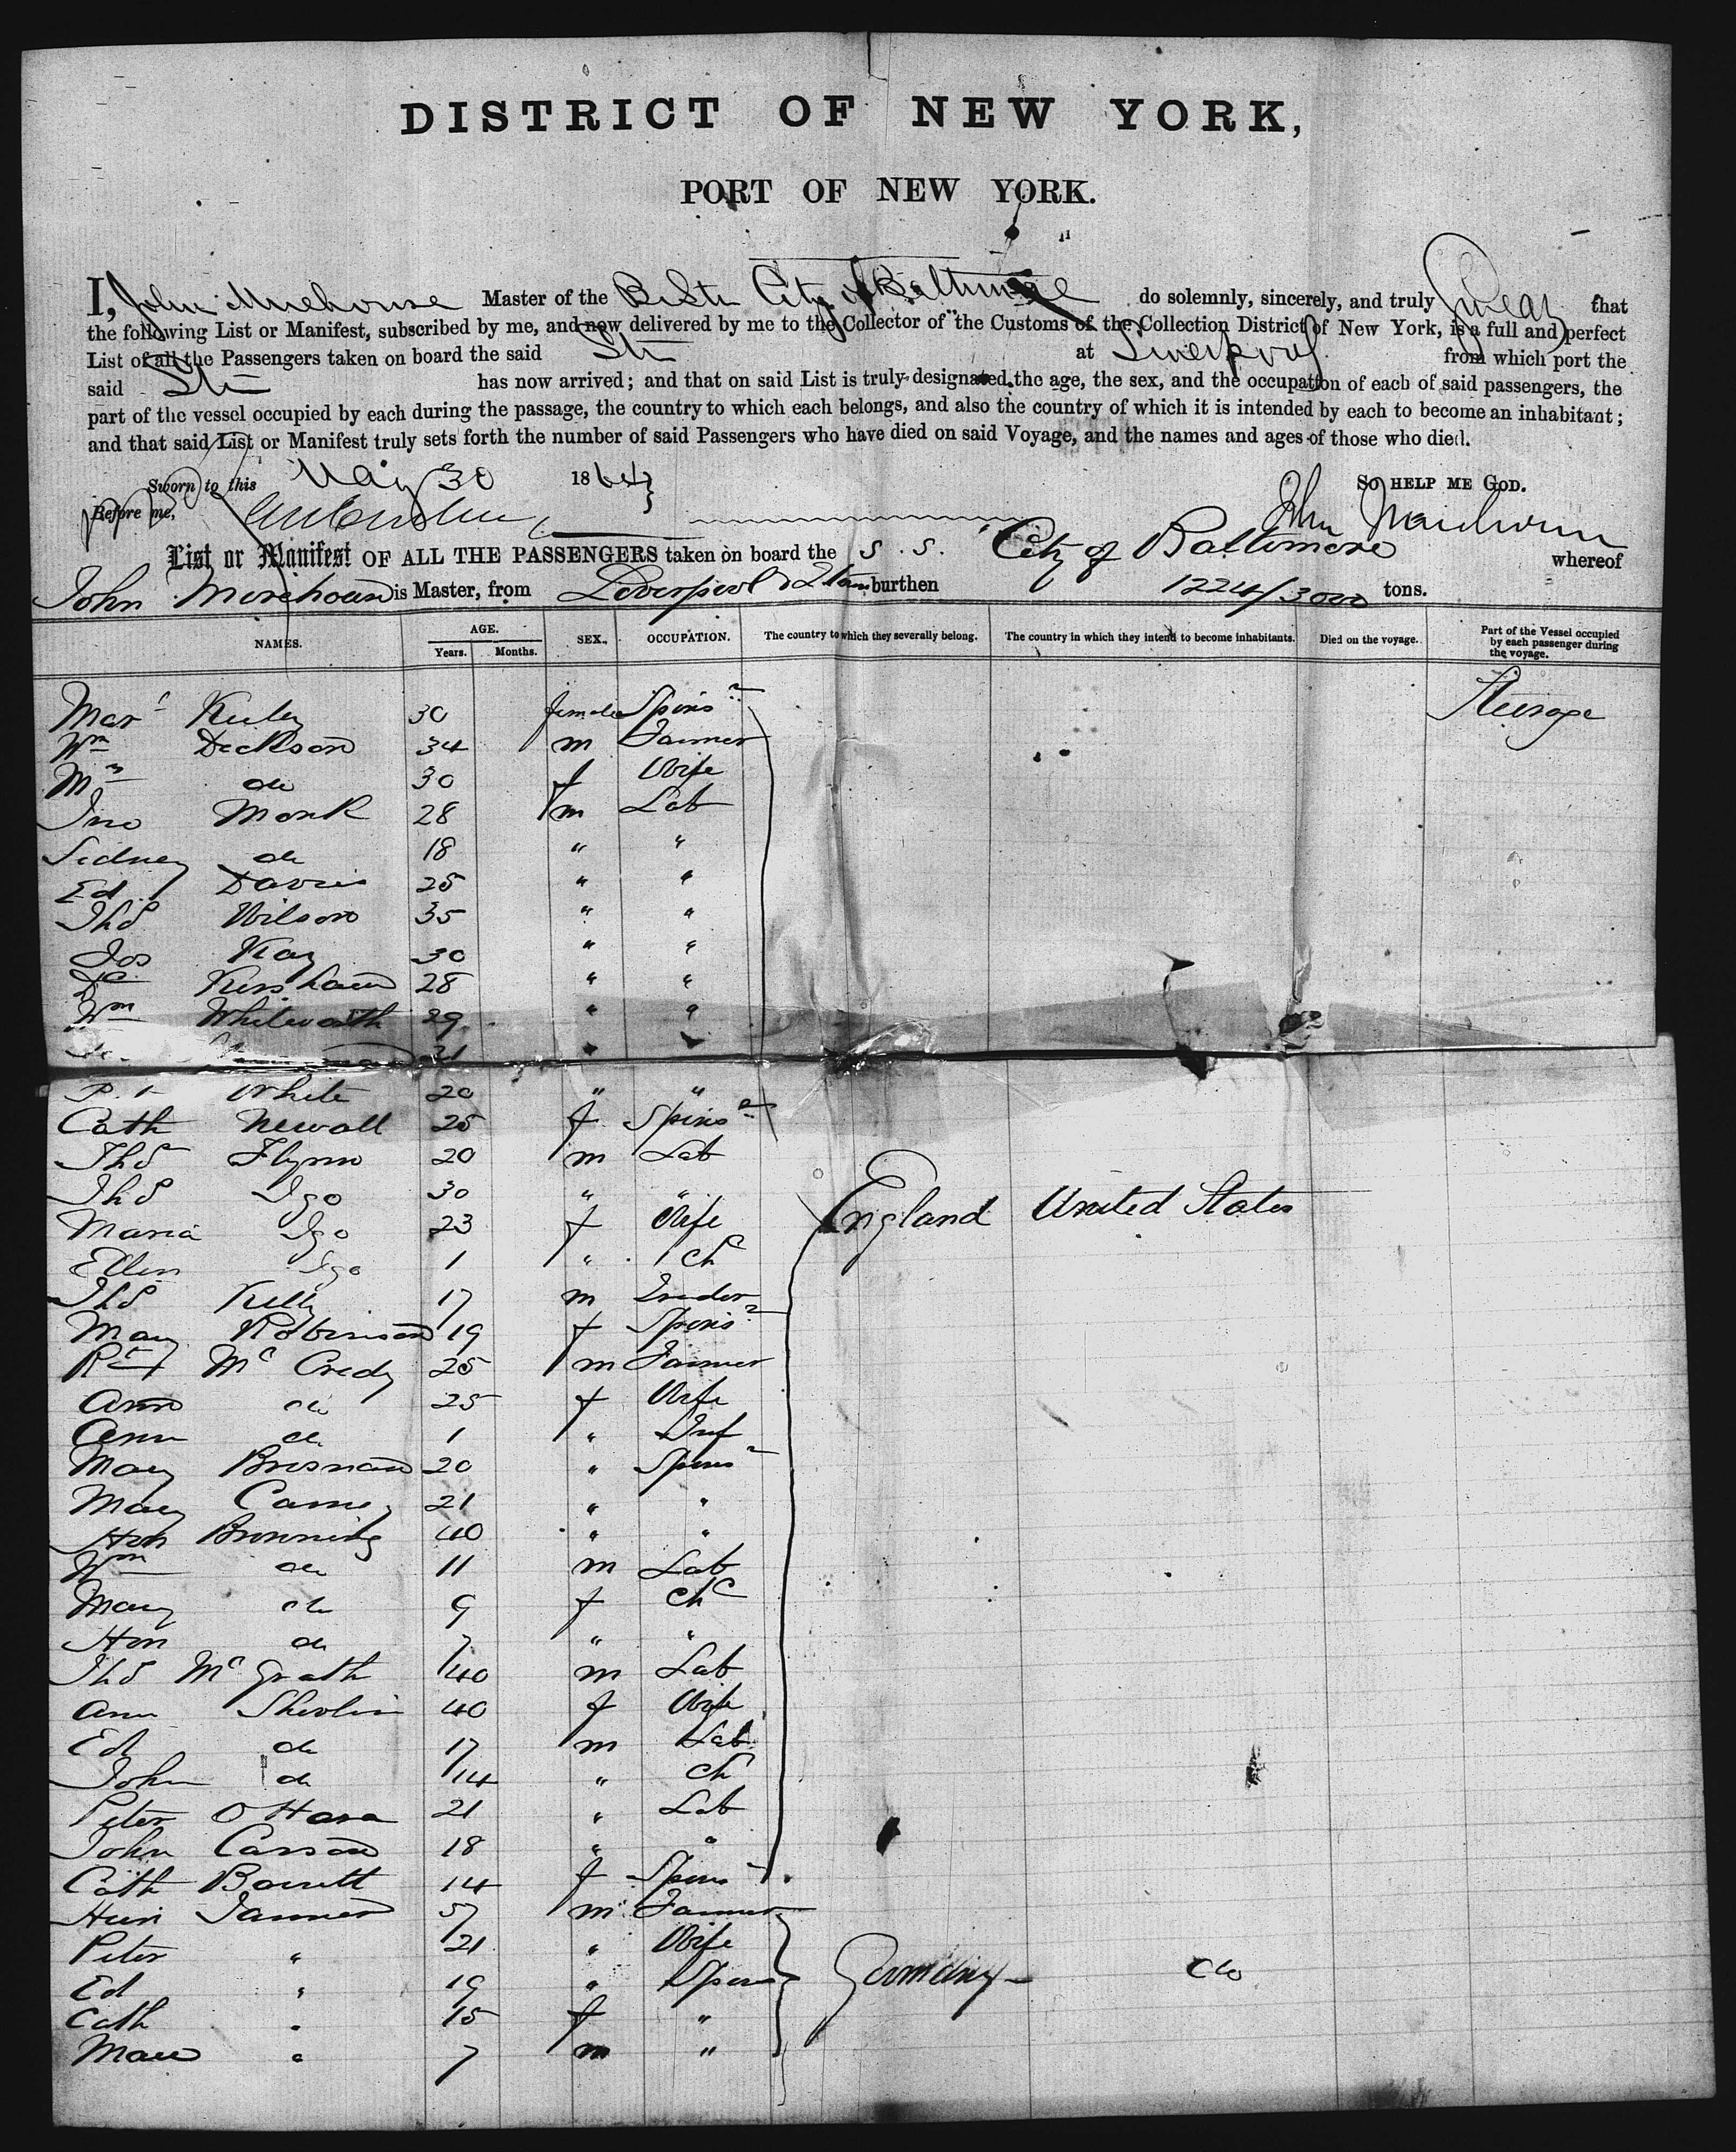 DISTRICT OF NEW YORK,
PORT OF NEW YORK.
I, John Master of the Br Str City of Baltimore do solemnly, sincerely, and truly Swear that
the following List or Manifest, subscribed by me, and now delivered by me to the Collector of the Customs of the Collection District of New York, is a full and perfect
List of all the Passengers taken on board the said Str at Liverpool from which port the
said Str has now arrived; and that on said List is truly designated the age, the sex, and the occupation of each of said passengers, the
part of the vessel occupied by each during the passage, the country to which each belongs, and also the country of which it is intended by each to become an inhabitant;
and that said List or Manifest truly sets forth the number of said Passengers who have died on said Voyage, and the names and ages of those who died.
Sworn to this May 30 1864 } SO HELP ME GOD.
Before me, John
List or Manifest OF ALL THE PASSENGERS taken on board the S. S. "City of Baltimore whereof
John Morehouse is Master, from Liverpool burthen 1224/3000 tons.
NAMES. AGE. Years. Months. SEX. OCCUPATION. The country to which they severally belong. The country in which they intend to become inhabitants. Died on the voyage. Part of the Vessel occupied by each passenger during the voyage.
Mart 30 female Spins Steerage
Wm Dickson 34 m Farmer
Mrs do 30 f Wife
Jno Monk 28 m Lab
Sidney do 18 " "
Ed Davies 25 " "
Thos Wilson 35 " "
Jos Kay 30 " "
Kershaw 28 " "
Wm Whitworth 29 " "
21 " "
White 20 " "
Cath Newall 25 f Spins
Thos Flynn 20 m Lab
Thos Igo 30 " " England United States
Maria Igo 23 f Wife
Ellen Igo 1 " Ch
Thos Kelly 17 m
Mary Robinson 19 f Spins
Rt Mc Credy 25 m Farmer
Ann do 25 f Wife
Ann do 1 " Inf
Mary Brosnan 20 " Spins
Mary 21 " "
Hon Browning 40 " "
Wm do 11 m Lab
Mary do 9 f Ch
Hon do 7 " "
Thos Mc Grath 40 m Lab
Ann Shevlin 40 f Wife
Ed do 17 m Lab
John do 14 " Ch
Peter O Hara 21 " Lab
John Carson 18 " "
Cath Barrett 14 f Spins
57 m Farmer
Peter " 21 " Wife
Ed " 19 " Spins Germany do
Cath " 15 f "
" 7 m "